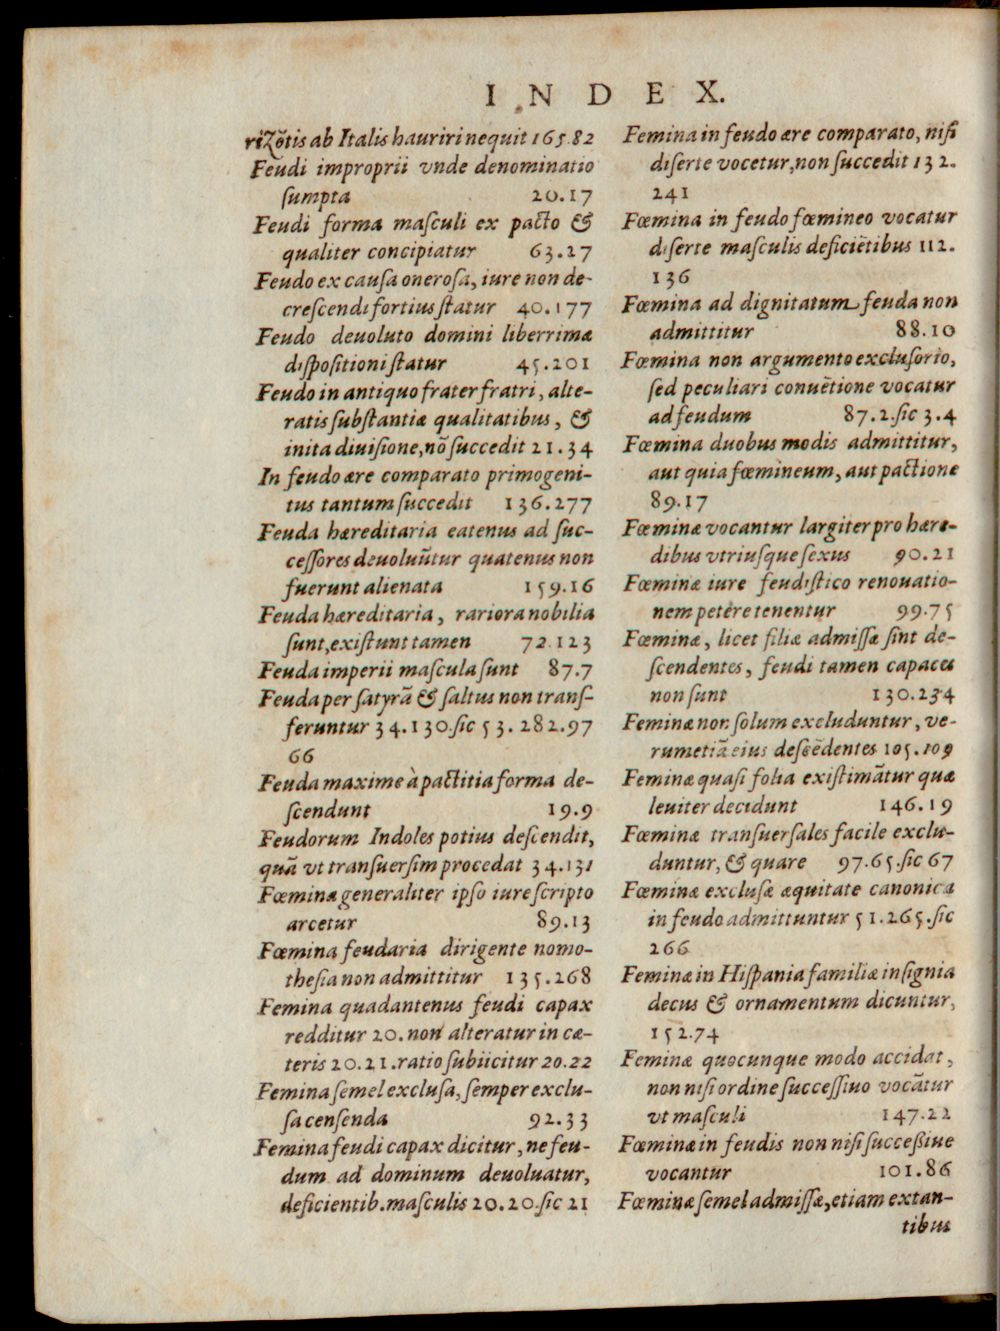 INDEX.
rizõtis ab Italis hauriri nequit 165.82
Feudi improprii vnde denominatio
ſumpta 20.17
Feudi forma maſculi ex pacto &
qualiter concipiatur 63.27
Feudo ex cauſa oneroſa, iure non de-
creſcendi fortius ſtatur 40.177
Feudo deuoluto domini liberrimæ
diſpoſitioni ſtatur 45.201
Feudo in antiquo frater fratri, alte-
ratis ſubſtantiæ qualitatibus, &
inita diuiſione, nõ ſuccedit 21.34
In feudo ære comparato primogeni-
tus tantum ſuccedit 136.277
Feuda hæreditaria eatenus ad ſuc-
ceſſores deuoluũtur quatenus non
fuerunt alienata 159.16
Feuda hæreditaria, rariora nobilia
ſunt, exiſtunt tamen 72.123
Feuda imperii maſcula ſunt 87.7
Feuda per ſatyrã & ſaltus non tranſ-
feruntur 34.130. ſic 53.282.97
66
Feuda maxime à pactitia forma de-
ſcendunt 19.9
Feudorum Indoles potius deſcendit,
quã vt tranſuerſim procedat 34.131
Fœmina generaliter ipſo iure ſcripto
arcetur 89.13
Fœmina feudaria dirigente nomo-
theſia non admittitur 135.268
Femina quadantenus feudi capax
redditur 20. non alteratur in cæ-
teris 20.21. ratio ſubiicitur 20.22
Femina ſemel excluſa, ſemper exclu-
ſa cenſenda 92.33
Femina feudi capax dicitur, ne feu-
dum ad dominum deuoluatur,
deficientib. maſculis 20.20. ſic 21
Femina in feudo ære comparato, niſi
diſerte vocetur, non ſuccedit 132.
241
Fœmina in feudo fœmineo vocatur
diſerte maſculis deficiẽtibus 112.
136
Fœmina ad dignitatum feuda non
admittitur 88.10
Fœmina non argumento excluſorio,
ſed peculiari conuẽtione vocatur
ad feudum 87.2. ſic 3.4
Fœmina duobus modis admittitur,
aut quia fœmineum, aut pactione
89.17
Fœminæ vocantur largiter pro hære-
dibus vtriuſque ſexus 90.21
Fœminæ iure feudiſtico renouatio-
nem petere tenentur 99.75
Fœminæ, licet filiæ admiſſæ ſint de-
ſcendentes, feudi tamen capaces
non ſunt 130.234
Feminæ non ſolum excluduntur, ve-
rumetiã eius deſcẽdentes 105.109
Feminæ quaſi folia exiſtimãtur quæ
leuiter decidunt 146.19
Fœminæ tranſuerſales facile exclu-
duntur, & quare 97.65. ſic 67
Fœminæ excluſæ æquitate canonica
in feudo admittuntur 51.265. ſic
266
Feminæ in Hiſpania familiæ inſignia
decus & ornamentum dicuntur,
152.74
Feminæ quocunque modo accidat,
non niſi ordine ſucceſſiuo vocãtur
vt maſculi 147.22
Fœminæ in feudis non niſi ſucceßiue
vocantur 101.86
Fœminæ ſemel admiſſæ, etiam extan-
tibus